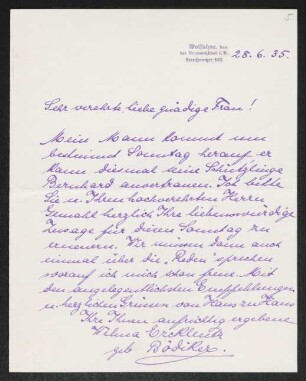 5
28.6.35.
Sehr verehrte, liebe gnädige Frau!
Mein Mann kommt nun
bestimmt Sonntag herauf er
kann diesmal seine Schützlinge
Bernhard anvertrauen. Ich bitte
Sie u. Ihren hochverehrten Herrn
Gemahl herzlich Ihre liebenswürdige
Zusage für diesen Sonntag zu
erneuern. Wir müssen dann auch
einmal über die "Reden" sprechen
worauf ich mich schon freue. Mit
den angelegentlichsten Empfehlungen
u. herzlichen Grüssen von Haus zu Haus
Ihre Ihnen aufrichtig ergebene
Wilma Erckleutz
geb Bödiker.